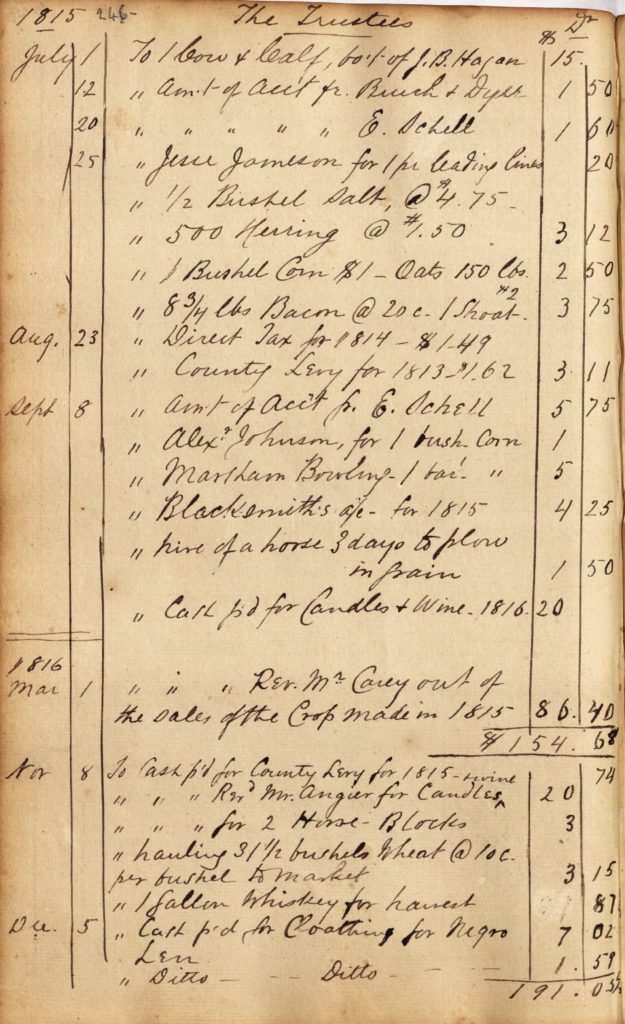 1815 246 The Trustees
$ Dr
July 1 To 1 Cow & Calf, bo't of J.B. Hagan 15.
12 " Am't of Acc't fr. Burch & Dyer 1 50
20 " " " " " E. Schell 1 60
25 " Jesse Jameson for 1 pr leading lines 20
" 1/2 Bushel Salt, @ $4.75 -
" 500 Herring @ $1.50 3 12
" 1 Bushel Corn $1 - Oats 150 lbs. 2 50
" 8 3/4 lbs Bacon @ 20c. 1 Shoat. $2 3 75
Aug. 23 " Direct Tax for 1814 - $1.49
" County Levy for 1813 - $1.62 3 11
Sept 8 " Am't of Acc't fr. E. Schell 5 75
" Alexr Johnson, for 1 bush. Corn 1
" Bowling - 1 bar. " 5
" Blacksmith's a/c - for 1815 4 25
" hire of a horse 3 days to plow
in grain 1 50
" Cash p'd for Candles & Wine. 1816. 20
1816
Mar 1 " " " Rev. Mr Carey out of
the sales of the Crop made in 1815 86. 40
$154. 68
Nov 8 To Cash p'd for County Levy for 1815 - 74
& wine
" " " Revd Mr. Angier for Candles ^ 20
" " " for 2 Horse-Blocks 3
" hauling 31 1/2 bushels Wheat @ 10c.
per bushel to market 3 15
" 1 gallon Whiskey for harvest 87
Dec. 5 " Cash p'd for Cloathing for Negro 7 02
Len 1. 59
" Ditto - - - Ditto -
191. 05